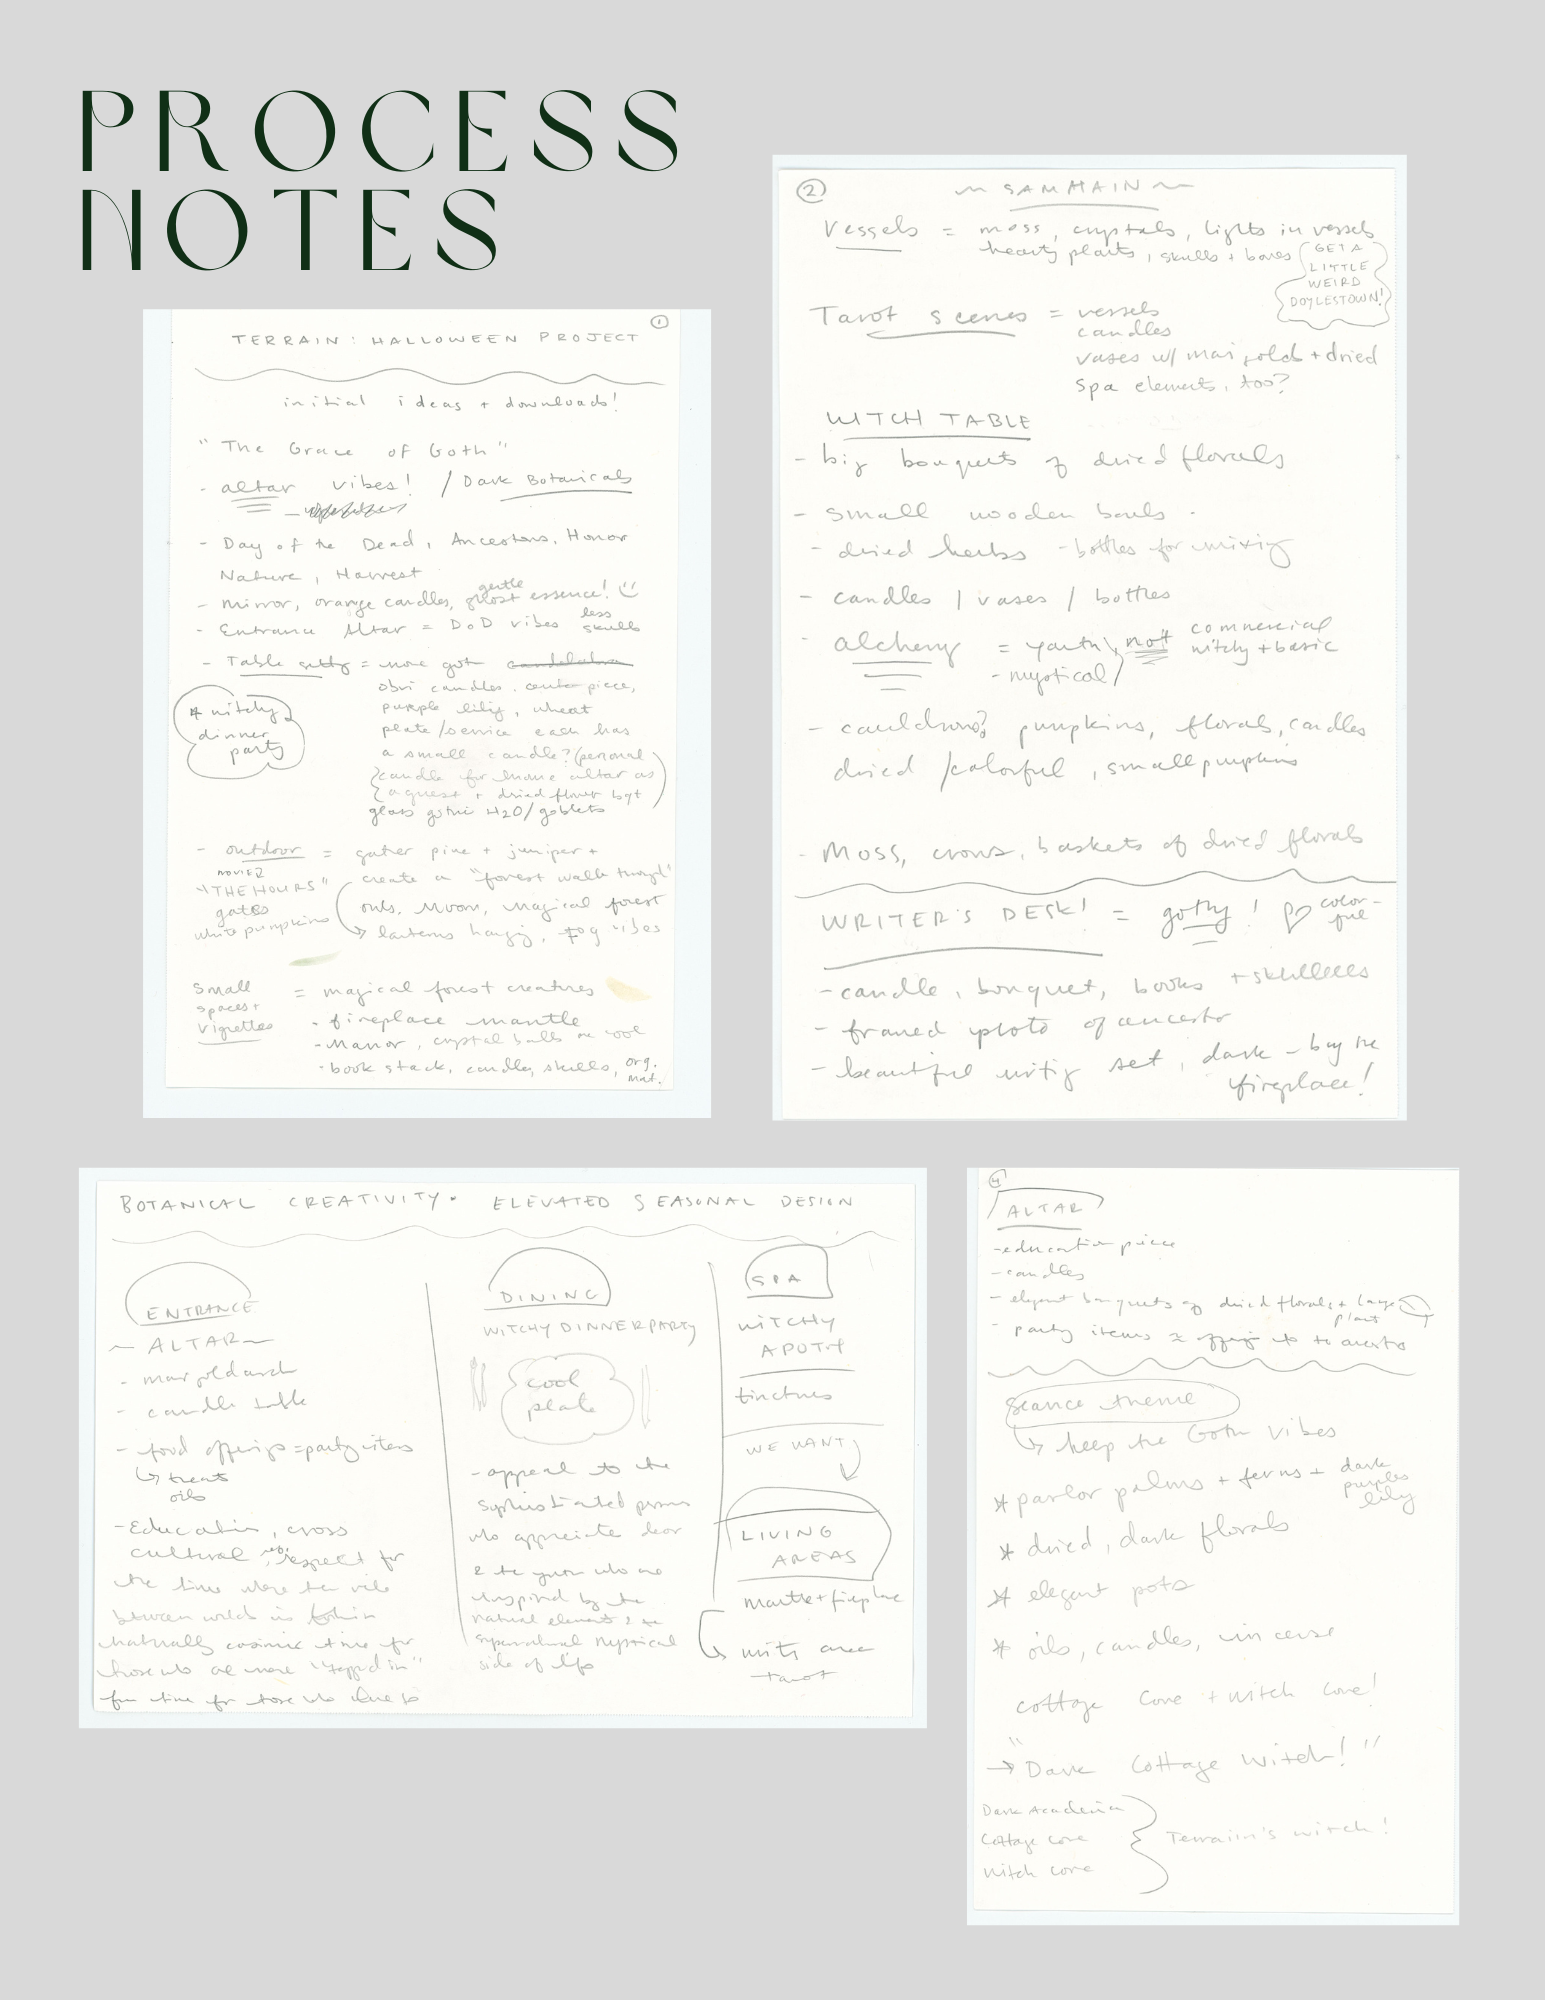 PROCESS
NOTES
①
TERRAIN: HALLOWEEN PROJECT
initial ideas + downloads!
"The Grace of Goth"
- altar vibes! / Dark Botanicals
- Day of the Dead, Ancestors, Honor
Nature, Harvest
- Mirror, orange candles, gentle ghost essence!
- Entrance Altar = DoD vibes less skulls
- Table setting = more goth candelabra
obvi candles. center piece,
purple lily, wheat
plate/service each has
a small candle? (personal
candle for home altar as
a guest + dried flower bqt
glass gothic H2O/goblets
* witchy
dinner
party
- outdoor = gather pine + juniper +
create a "forest walk through"
owls, Moon, magical forest
lanterns hanging, Fog vibes
movie?
"THE HOURS"
gates
white pumpkins
Small
spaces +
vignettes
= magical forest creatures
- fireplace mantle
- Mirror, crystal balls are cool
- book stack, candles, skulls, org.
mat.
②
~ SAMHAIN ~
Vessels = moss, crystals, lights in vessels
hearty plants, skulls + bones
GET A
LITTLE
WEIRD
DOYLESTOWN!
Tarot scenes = vessels
candles
vases w/ marigolds + dried
spa elements, too?
WITCH TABLE
- big bouquets of dried florals
- small wooden bowls.
- dried herbs - bottles for mixing
- candles / vases / bottles
- alchemy = earthy, not commercial
witchy + basic
- mystical
- cauldrons? pumpkins, florals, candles
dried / colorful, small pumpkins
- Moss, crows, baskets of dried florals
WRITER'S DESK! = gothy! color-
ful
- candle, bouquet, books + skulllllls
- framed photo of ancestor
- beautiful writing set, dark - by the
fireplace!
BOTANICAL CREATIVITY. ELEVATED SEASONAL DESIGN
ENTRANCE
~ ALTAR ~
- marigold arch
- candle table
- food offerings = party items
treats
oils
- Education, cross
cultural, respect for
the time where the veil
between worlds is
naturally cosmic time for
those who are more "tapped in"
fun time for those who
DINING
WITCHY DINNER PARTY
cool
plate
- appeal to the
sophisticated person
who appreciate decor
& the youth who are
inspired by the
natural element & the
supernatural mystical
side of life
SPA
WITCHY
APOTH
tinctures
WE WANT
LIVING
AREAS
mantle + fireplace
area
tarot
④
ALTAR
- education piece
- candles
- elegant bouquets of dried florals + large
plant
- party items = offerings to ancestors
seance theme
keep the Goth vibes
* parlor palms + ferns + dark
purples
lily
* dried, dark florals
* elegant pots
* oils, candles, incense
cottage core + witch core!
→ "Dark Cottage Witch!"
Dark Academia
Cottage core
Witch core
Terrain's witch!